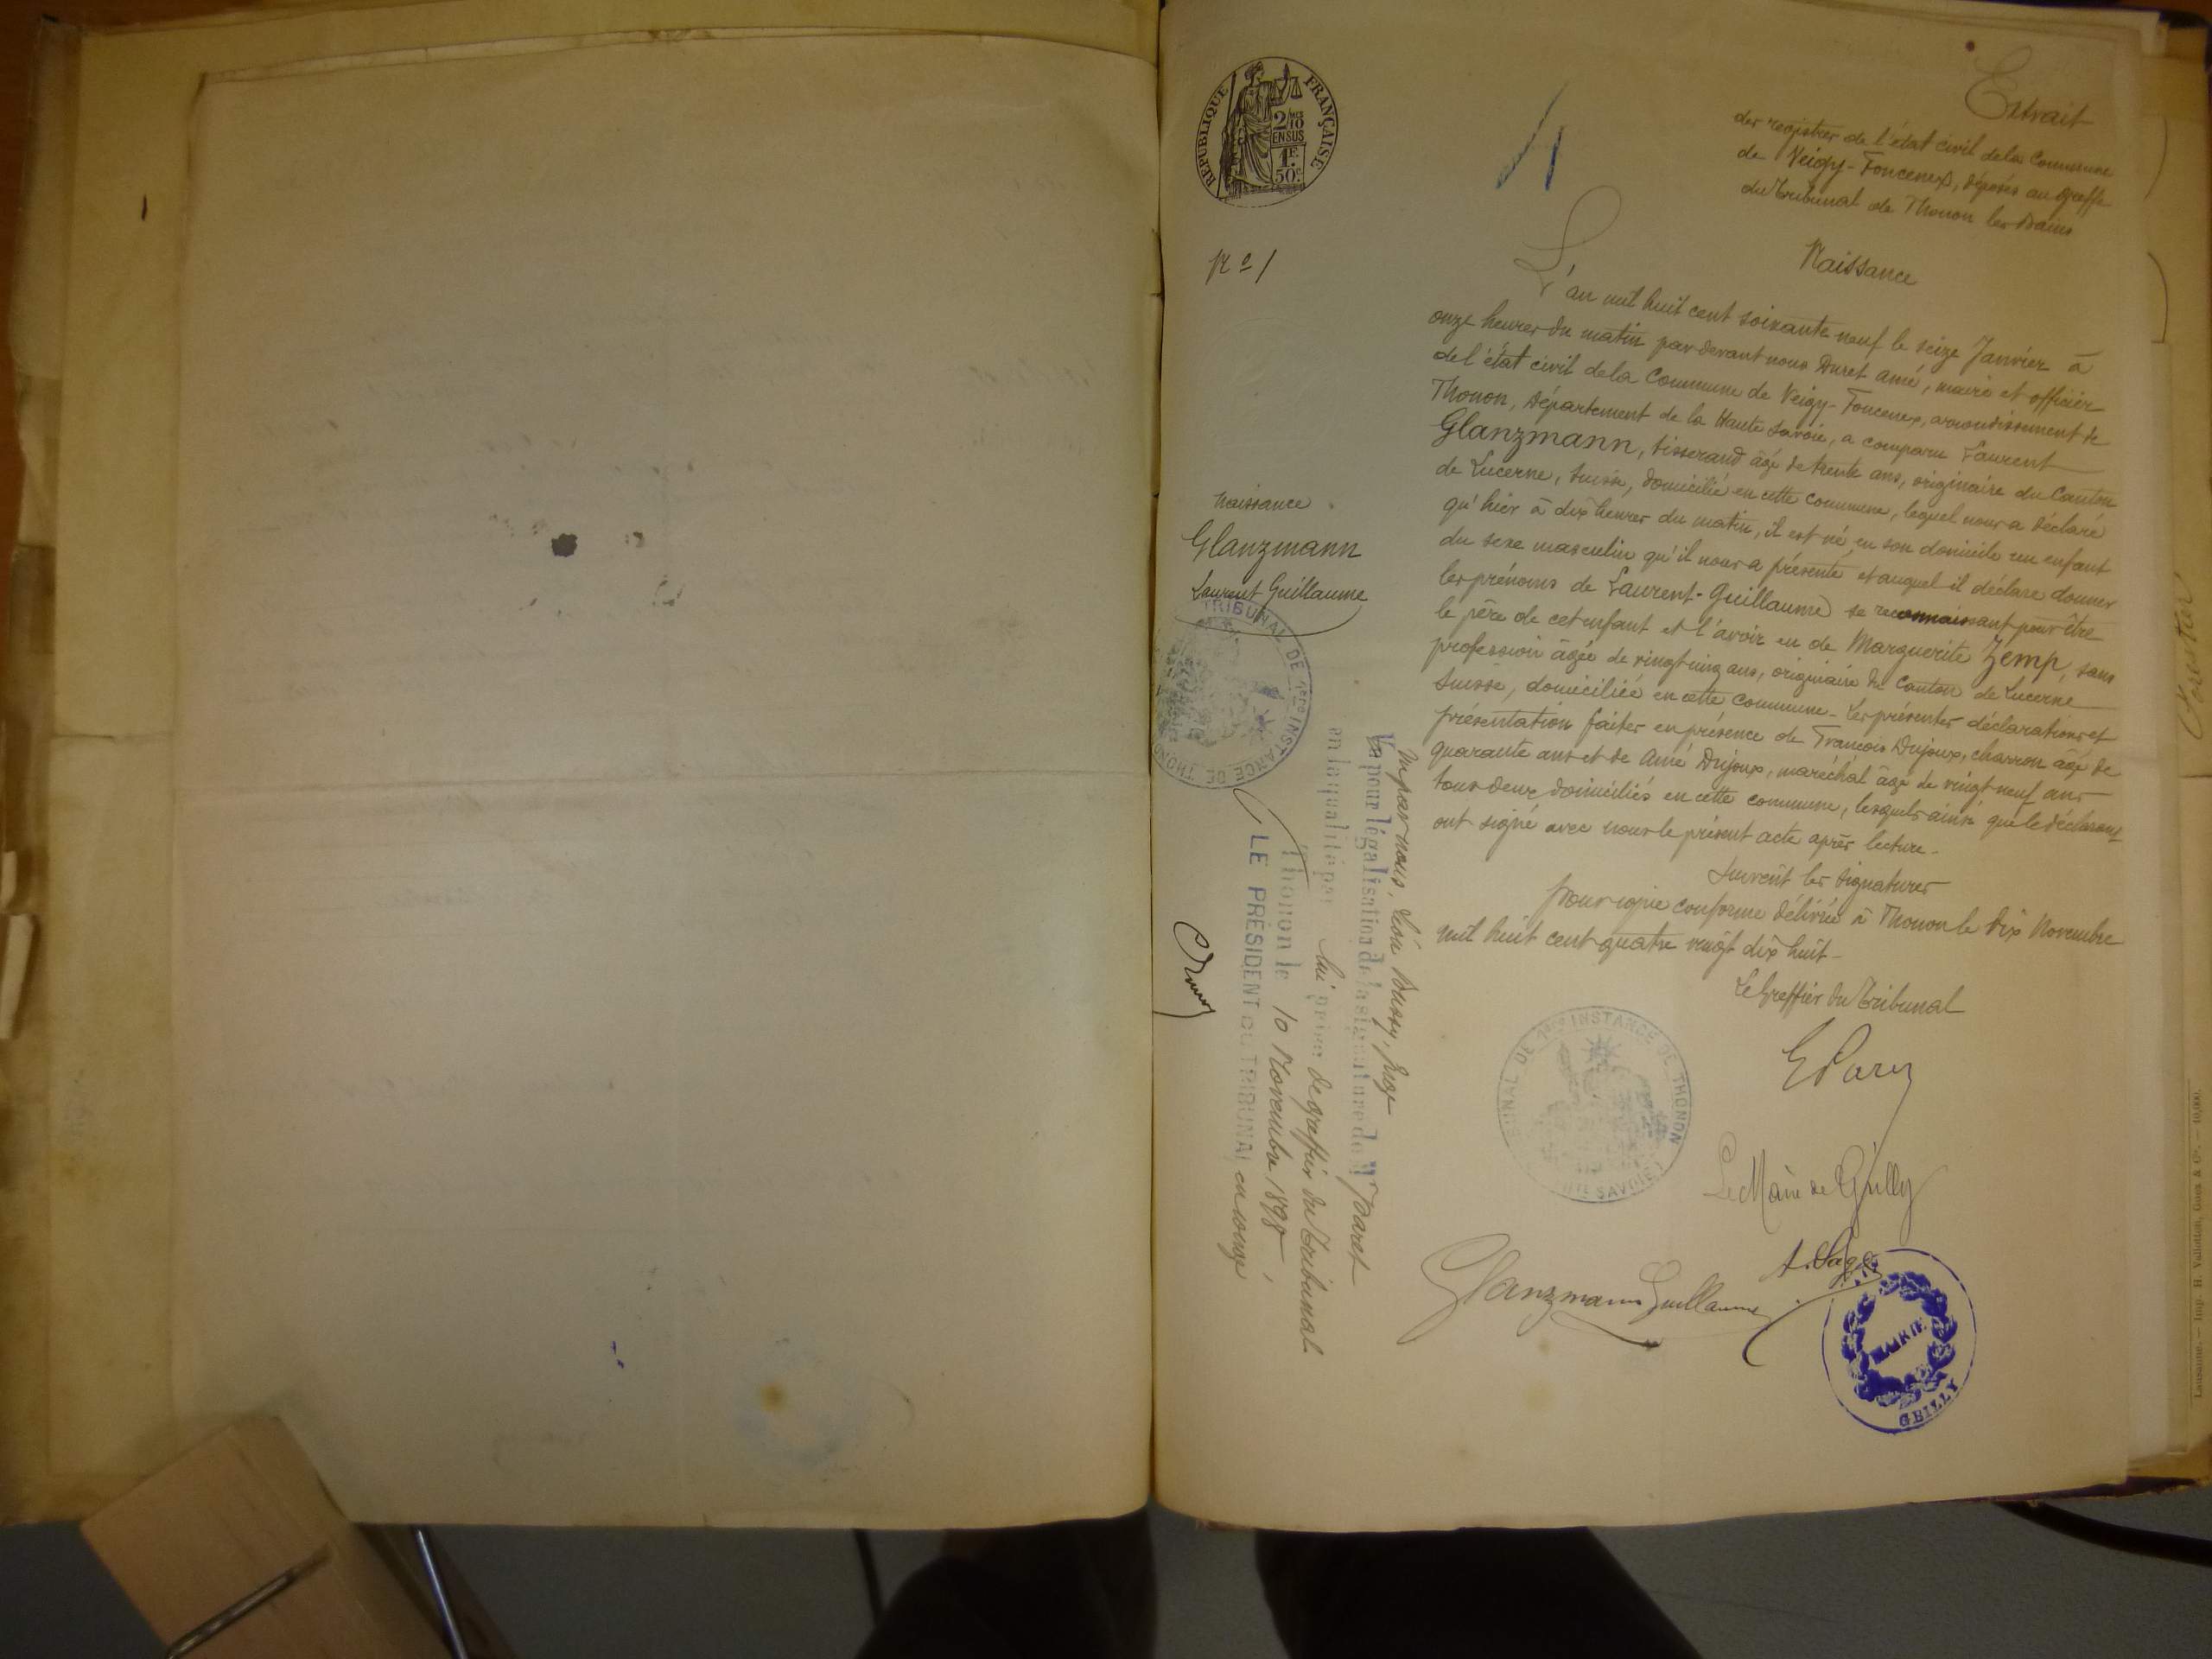 Extrait
des registres de l'état civil de la Commune
de Veigy-Foncenex, déposés au greffe
du Tribunal de Thonon les Bains
RÉPUBLIQUE FRANÇAISE
2/10
EN SUS
1F.
50c
No 1
Naissance
L'an mil huit cent soixante neuf le seize Janvier à
onze heures du matin par devant nous Duret Amé, maire et officier
de l'état civil de la Commune de Veigy-Foncenex, arrondissement de
Thonon, Département de la Haute Savoie, a comparu Laurent
Glanzmann, tisserand âgé de trente ans, originaire du Canton
de Lucerne, Suisse, domicilié en cette commune, lequel nous a déclaré
qu'hier à dix heures du matin, il est né en son domicile un enfant
du sexe masculin qu'il nous a présenté et auquel il déclare donner
les prénoms de Laurent-Guillaume se reconnaissant pour être
le père de cet enfant et l'avoir eu de Marguerite Zemp, sans
profession âgée de vingt cinq ans, originaire du Canton de Lucerne
Suisse, domiciliée en cette commune - Les présentes déclaration et
présentation faites en présence de François Dujoux, charron âgé de
quarante ans et de Amé Dujoux, maréchal âgé de vingt neuf ans
tous deux domiciliés en cette commune, lesquels ainsi que le déclarant
ont signé avec nous le présent acte après lecture -
Suivent les signatures
Pour copie conforme délivrée à Thonon le dix Novembre
mil huit cent quatre vingt dix huit -
Le Greffier du Tribunal
Le Maire de Gilly
Glanzmann Guillaume
MAIRIE
GEILLY
TRIBUNAL DE 1ère INSTANCE DE THONON
HTE SAVOIE
Naissance
Glanzmann
Laurent Guillaume
TRIBUNAL DE 1ère INSTANCE DE THONON
Vu par nous, Léon Bussy, juge
Vu pour légalisation de la signature de Mr Paret
en la qualité par lui prise de greffier du Tribunal
Thonon le 10 Novembre 1898
LE PRÉSIDENT DU TRIBUNAL en congé
Lausanne. - Imp. H. Vallotton, Guex & Cie. - 10.000.